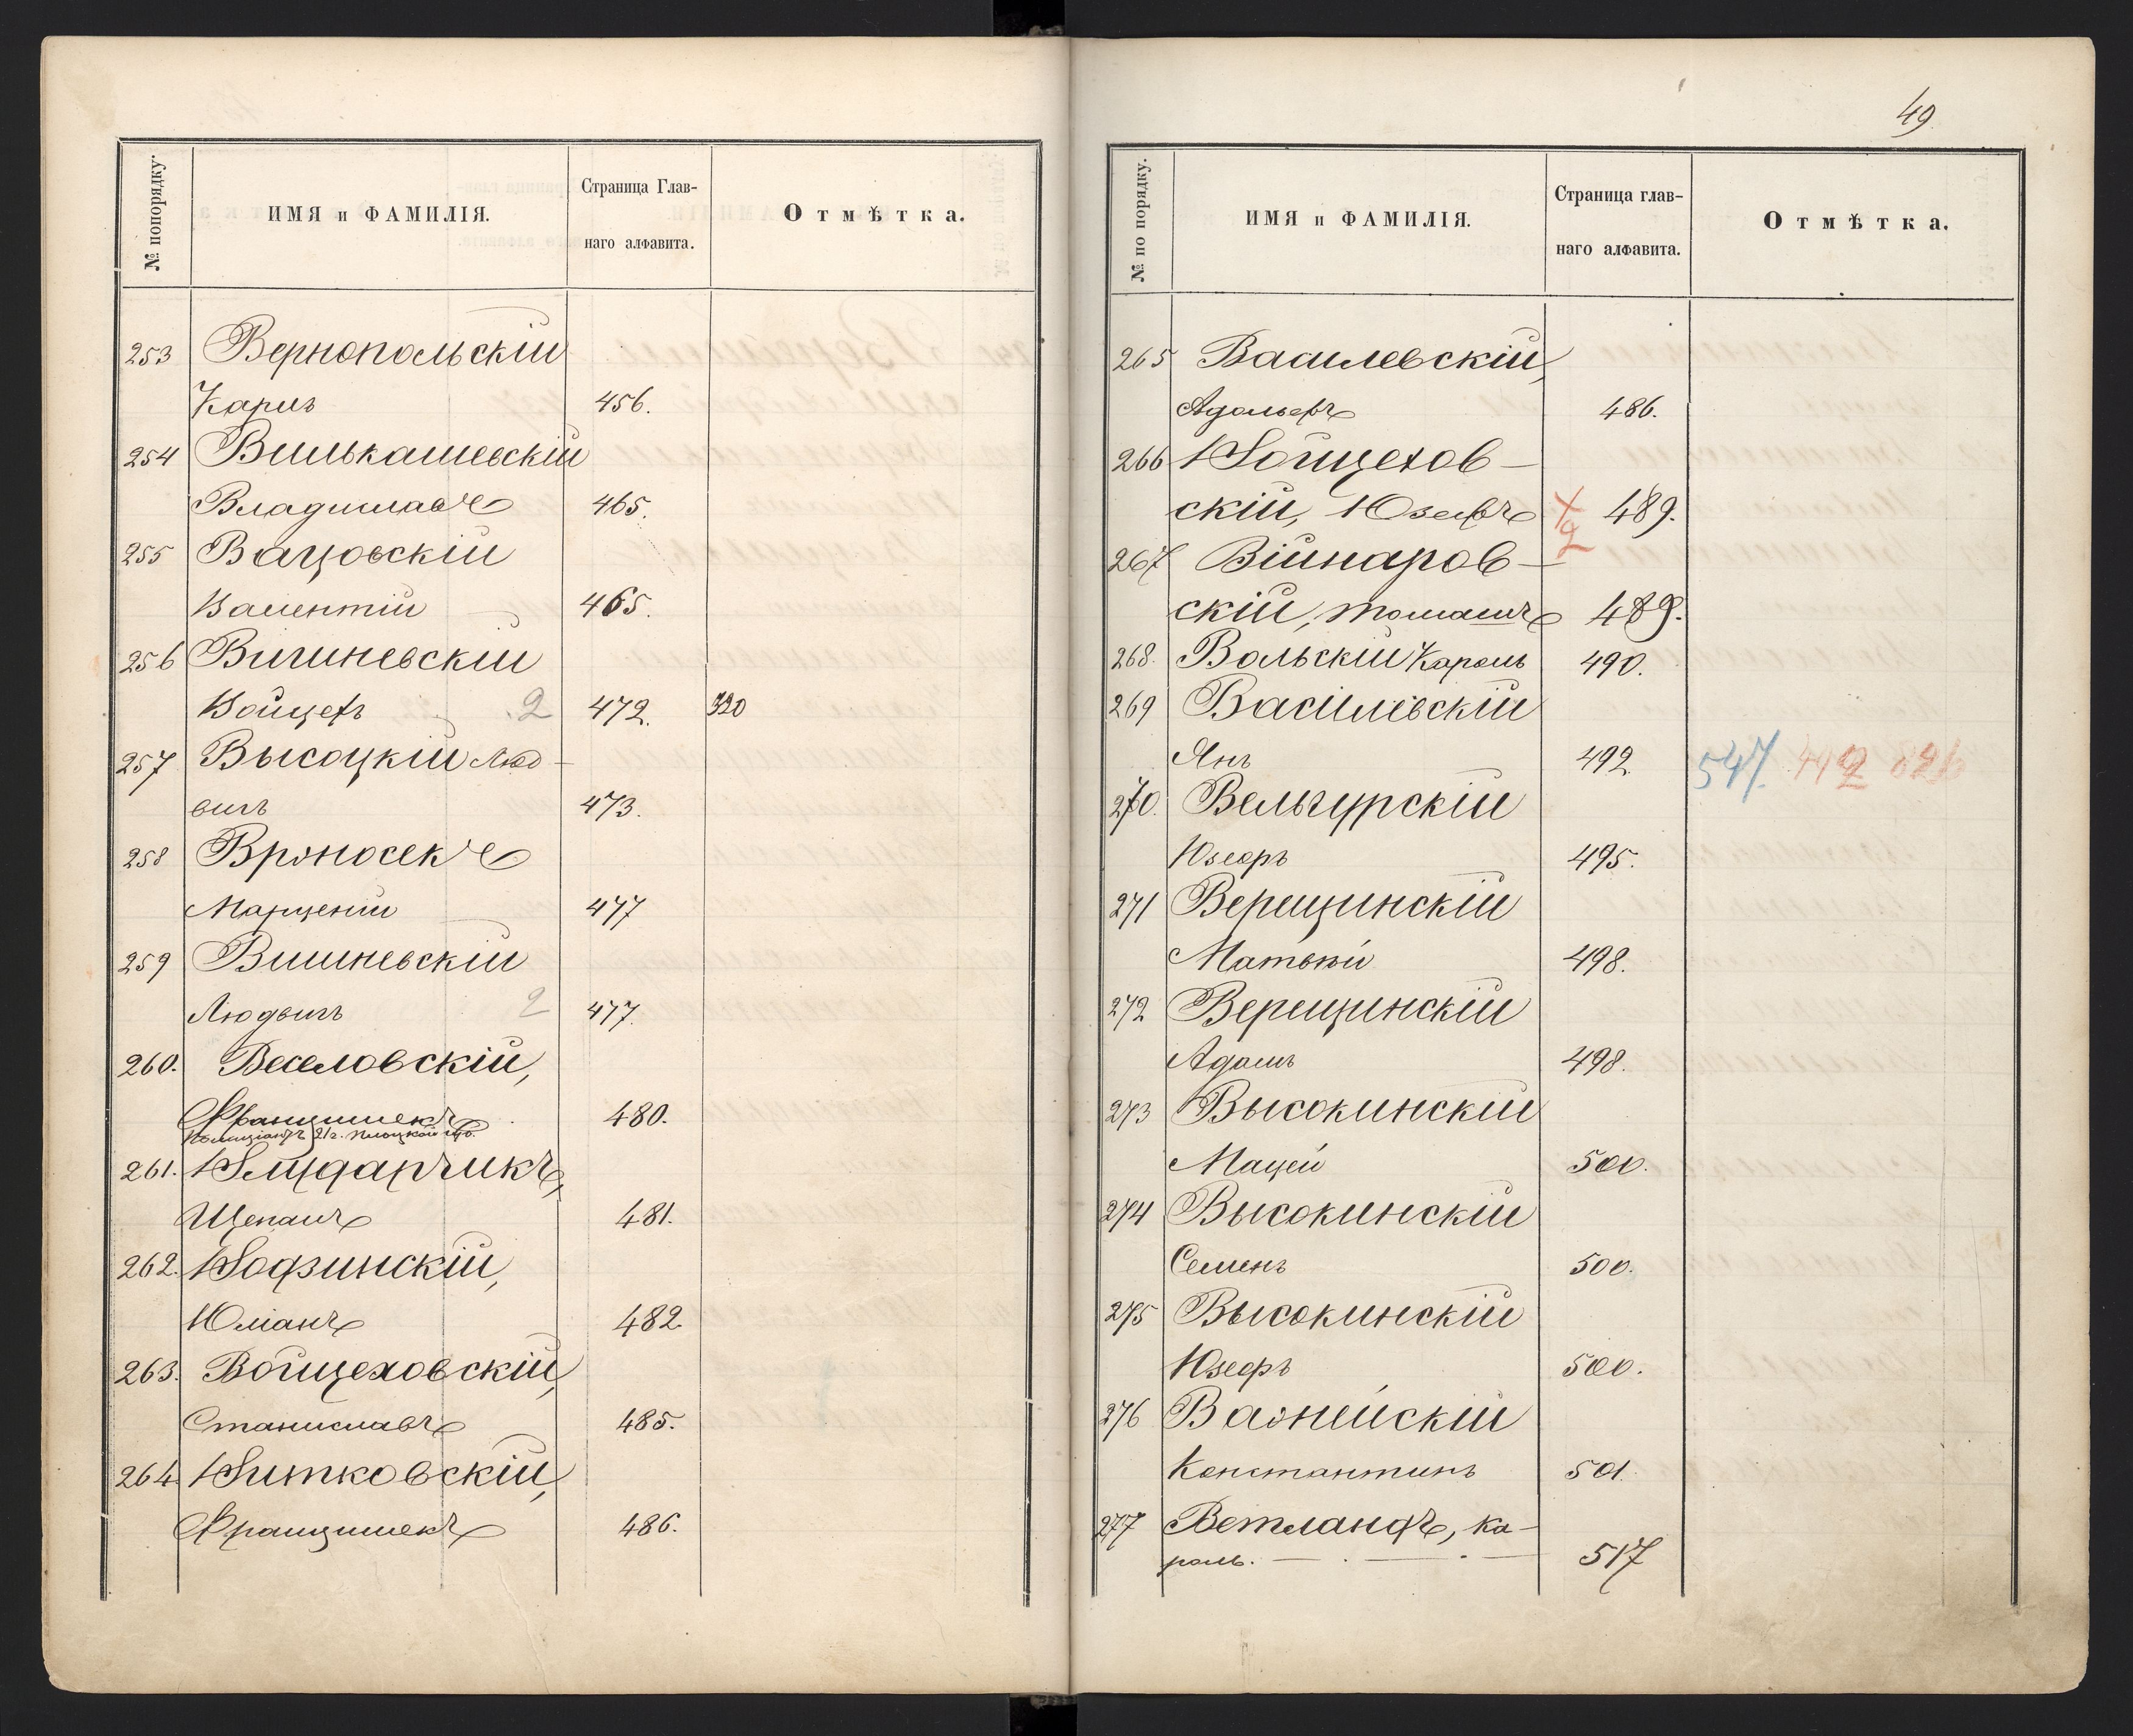 № попорядку.
ИМЯ и ФАМИЛІЯ.
Страница Глав-
наго алфавита.
Отмѣтка.
253 Вернопольскій
Карль 456.
254 Вилькашевскій
Владиславъ 465.
255 Вацовскій
Валентій 465.
256 Вишневскій
Войцехъ 2 472. 320
257 Высоцкій Люд-
вигъ 473.
258 Вроносекъ
Марценій 477
259 Вишневскій
Людвигъ 2 477.
260. Веселовскій,
Францишекъ 480.
261.
Щепанъ 481.
262. Водзинскій,
Юліанъ 482.
263. Войцеховскій,
Станиславъ 485.
264. Витковскій,
Францишекъ 486.
49
№ по порядку.
ИМЯ и ФАМИЛІЯ.
Страница глав-
наго алфавита.
Отмѣтка.
265 Василевскій,
Адольфъ 486.
266 Войцехов-
скій, Юзефъ 489.
267 Війнаров-
скій, Томашъ 489.
268. Вольскій Кароль 490.
269 Васілевскій
Янъ 492. 547.
270. Вельгурскій
Юзефъ 495.
271 Верещинскій
Матвѣй 498.
272 Верещинскій
Адамъ 498.
273 Высокинскій
Мацей 500.
274 Высокинскій
Семенъ 500.
275 Высокинскій
Юзефъ 500.
276 Важнейскій
Константинъ 501.
277 Ветландъ, Ка-
роль. 517